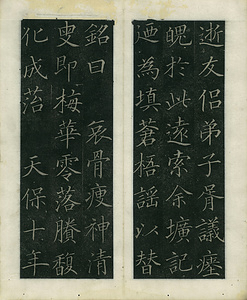 逝友侶弟子胥議瘞
魄於此遠索余壙記
迺為填蒼梧謡以替
銘曰　衮骨瘦神清
叟即梅華零落賸馥
化成菭　天保十年